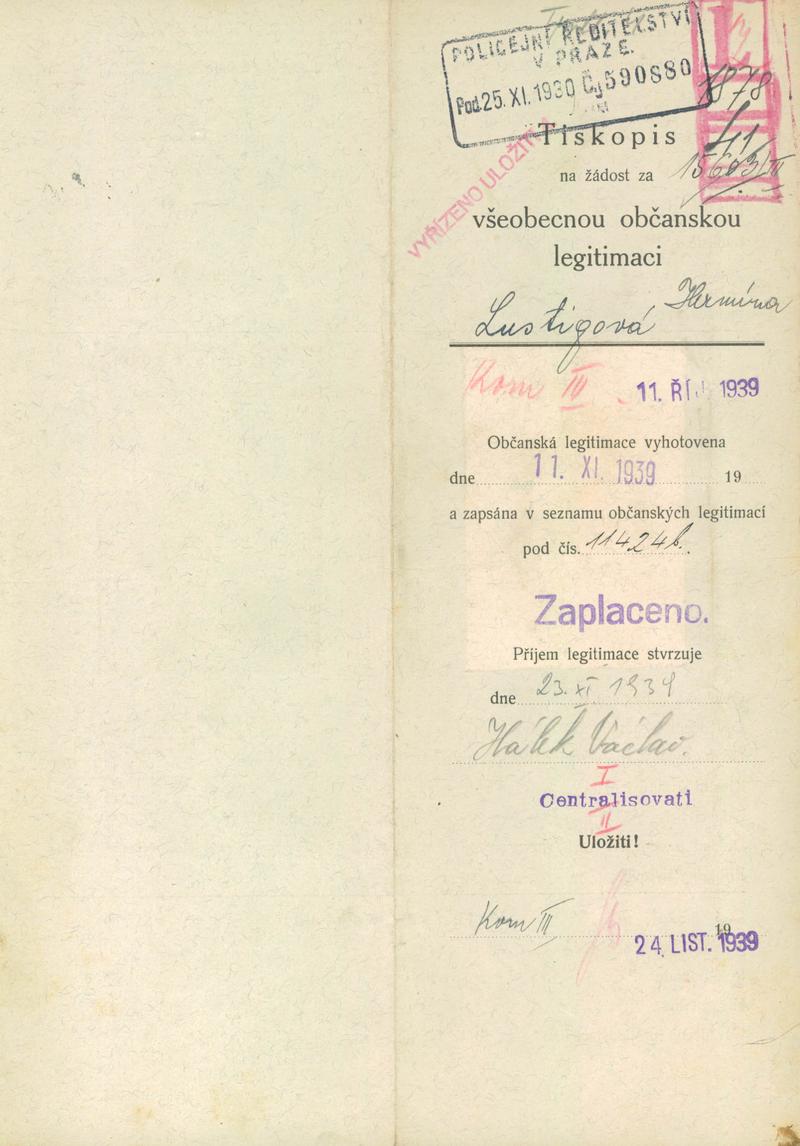 POLICEJNÍ ŘEDITELSTVÍ
V PRAZE.
Pod. 25. XI. 1930 Čj 590880
1878
Tiskopis
41
na žádost za
15603/III
VYŘÍZENO ULOŽITI
všeobecnou občanskou
legitimaci
Lustigová Hermína
Kom III 11. ŘÍJ. 1939
Občanská legitimace vyhotovena
dne 11. XI. 1939 19
a zapsána v seznamu občanských legitimací
pod čís. 114246.
Zaplaceno.
Příjem legitimace stvrzuje
dne 23. XI 1939
Hálek Václav.
I
Centralisovati
II
Uložiti!
Kom III
19
24. LIST. 1939